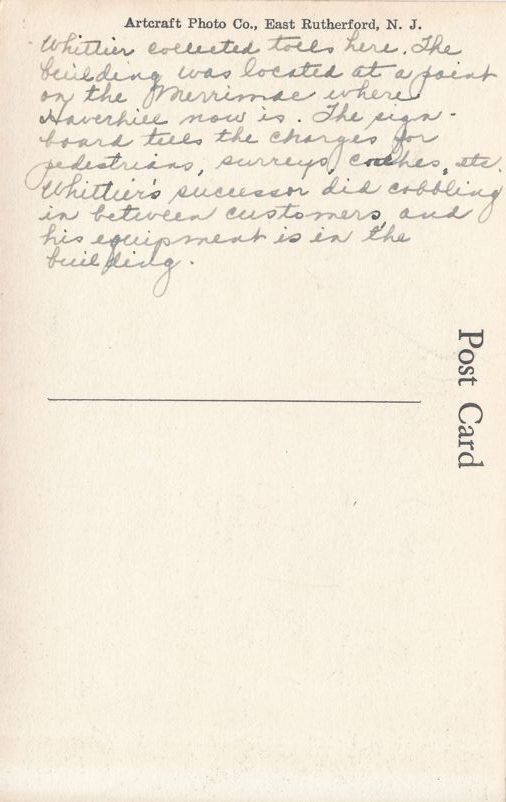 Artcraft Photo Co., East Rutherford, N. J.
Whittier collected tolls here. The
building was located at a point
on the Merrimac where
Haverhill now is. The sign-
board tells the charges for
pedestrians, surreys, coaches, etc.
Whittier's successor did cobbling
in between customers, and
his equipment is in the
building.
Post Card